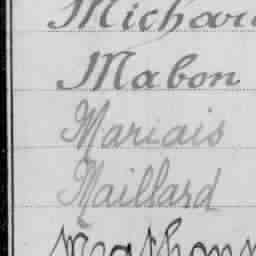 Michar
Mabon
Mariais
Maillard